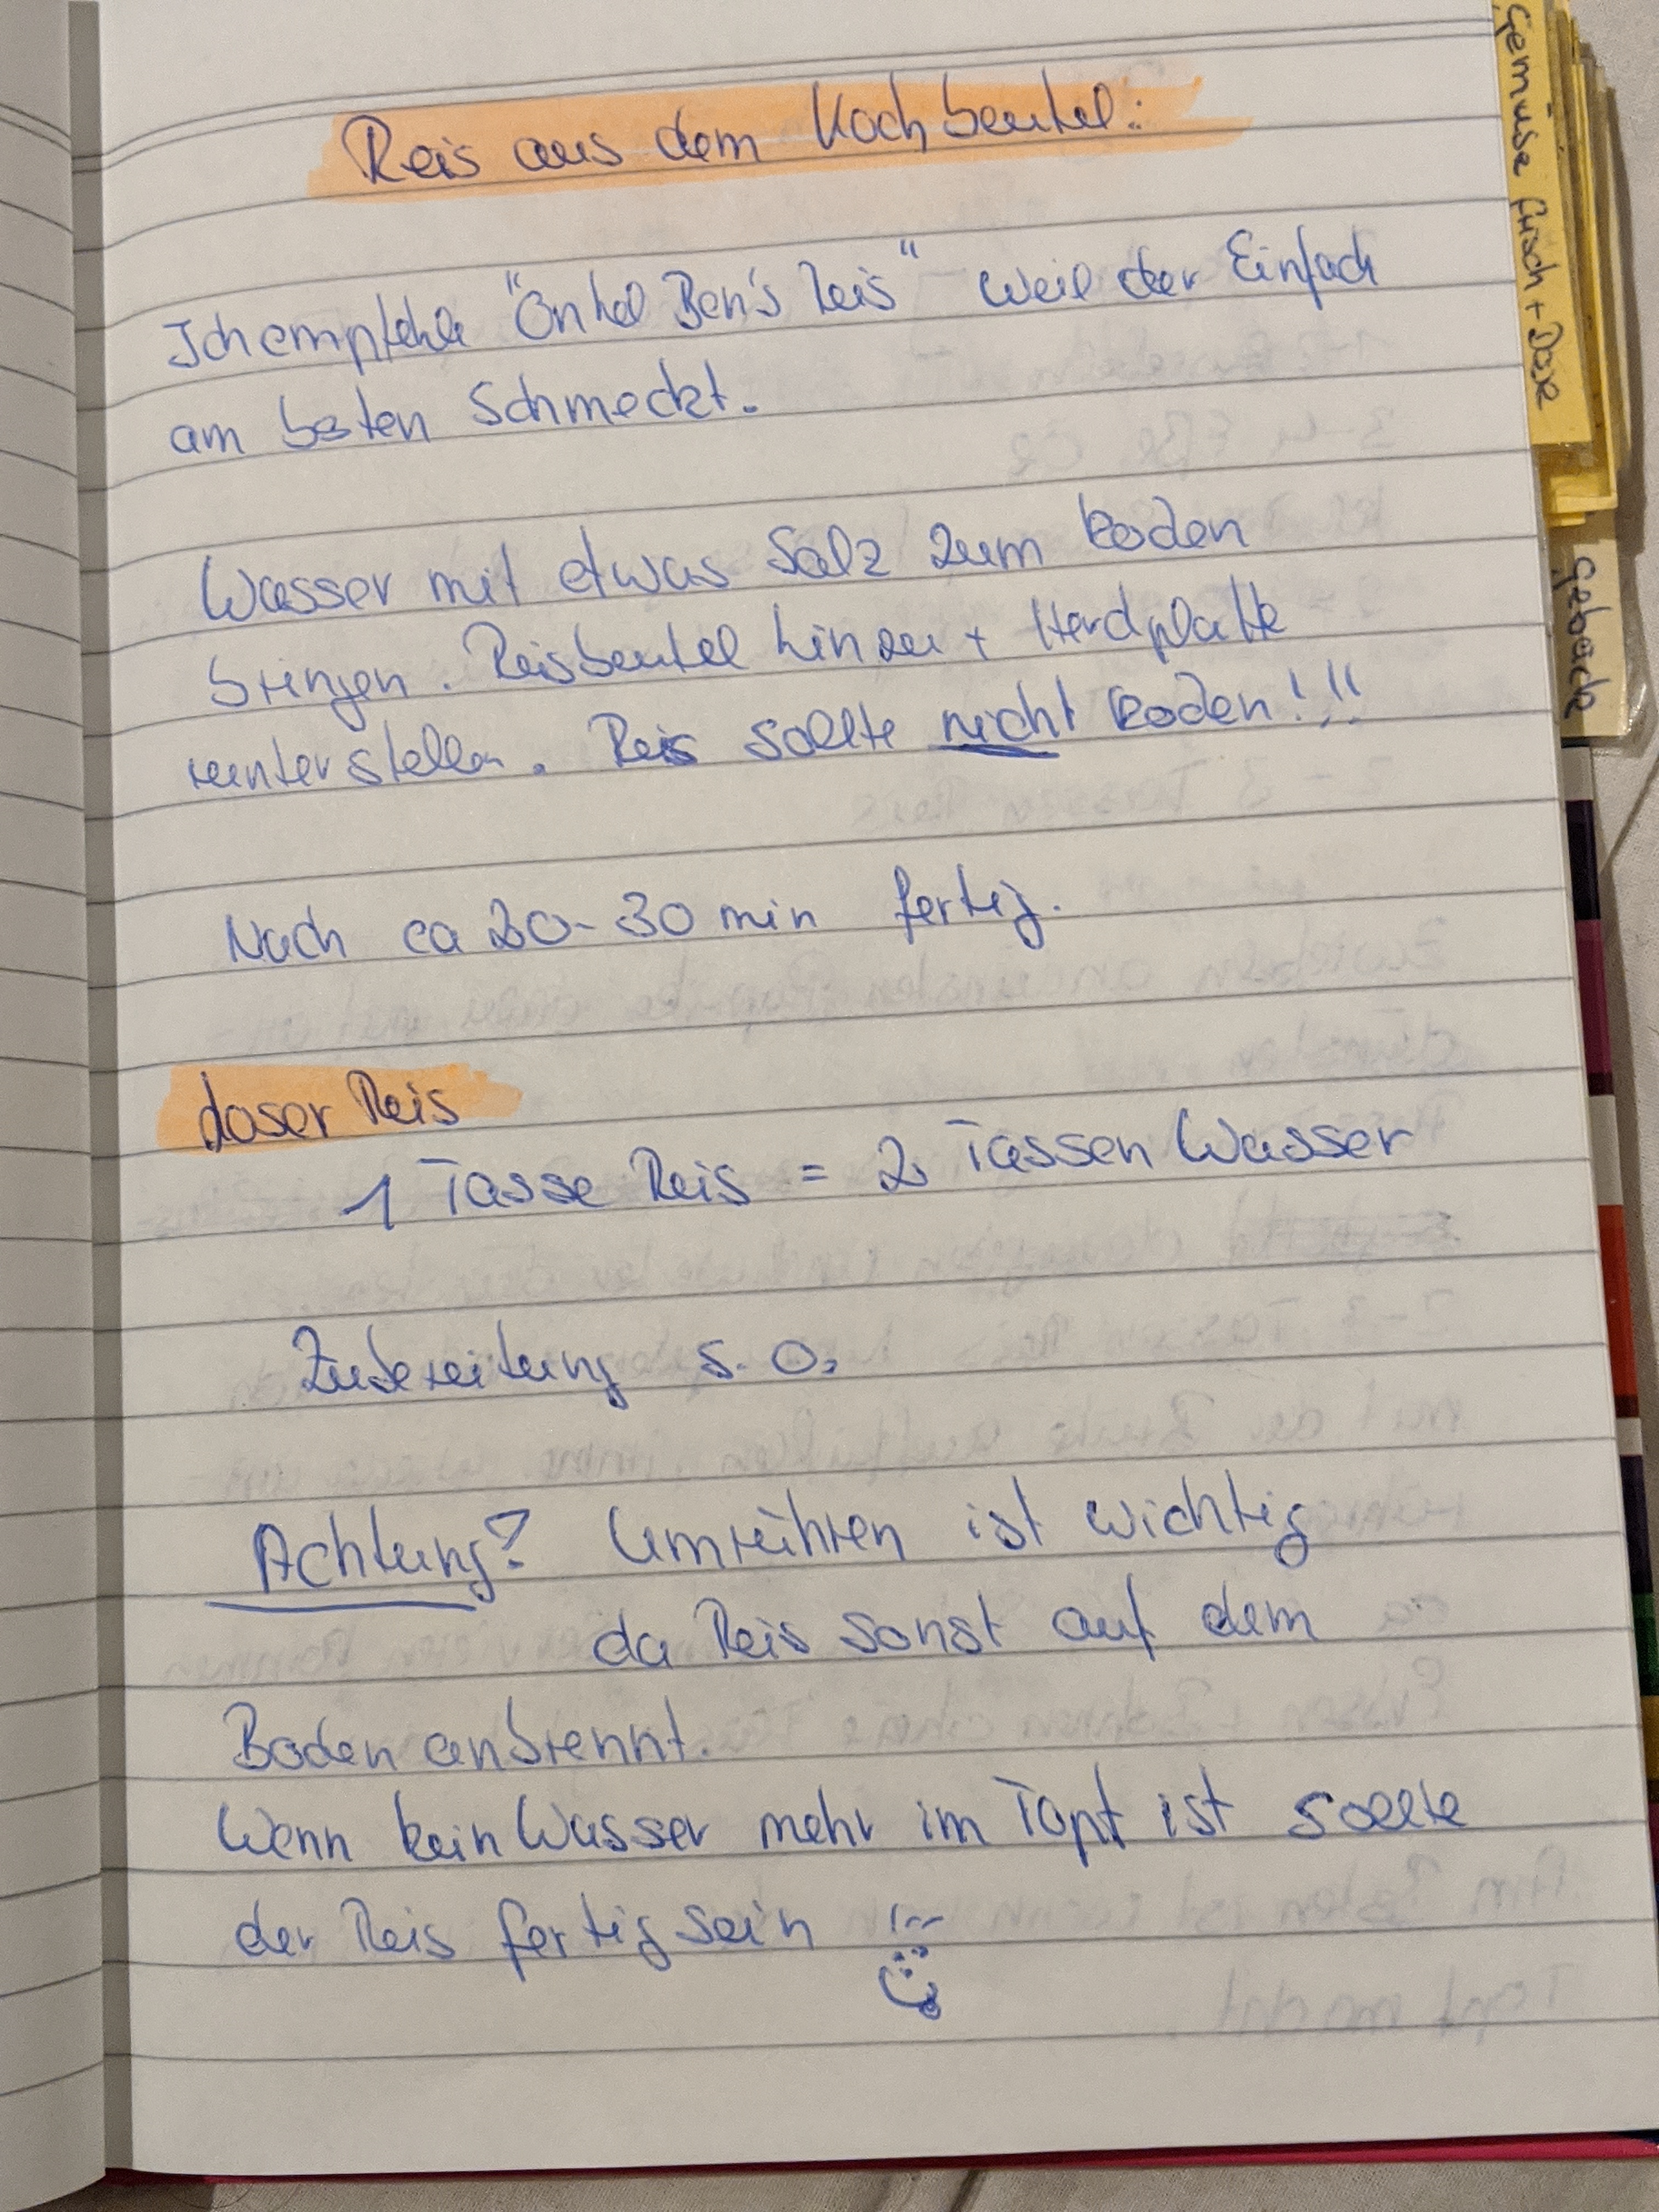 Reis aus dem Kochbeutel:
Ich empfehle "Onkel Ben's Reis" weil der Einfach
am besten Schmeckt.
Wasser mit etwas Salz zum kochen
bringen. Reisbeutel hinzu + Herdplatte
runter stellen. Reis sollte nicht kochen!!!
Nach ca 20-30 min fertig.
loser Reis
1 Tasse Reis = 2 Tassen Wasser
Zubereitung s. o.
Achtung! Umrühren ist wichtig
da Reis sonst auf dem
Boden anbrennt.
Wenn kein Wasser mehr im Topf ist sollte
der Reis fertig sein
Gemüse frisch + Dose
Gebäck